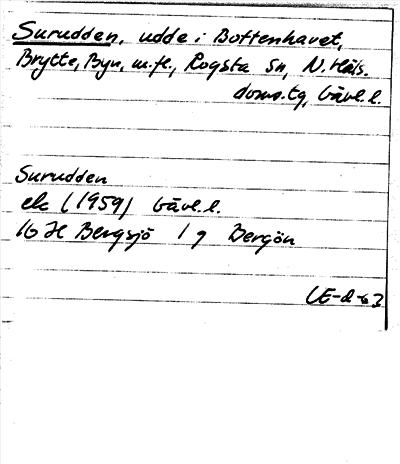 Surudden, udde i Bottenhavet,
Brytte, Byn, m.fl., Rogsta sn, N. Häls.
doms.tg, Gävl.l.
Surudden
ek (1959) Gävl.l.
16 H Bergsjö 1 g Bergön
LE-d-63